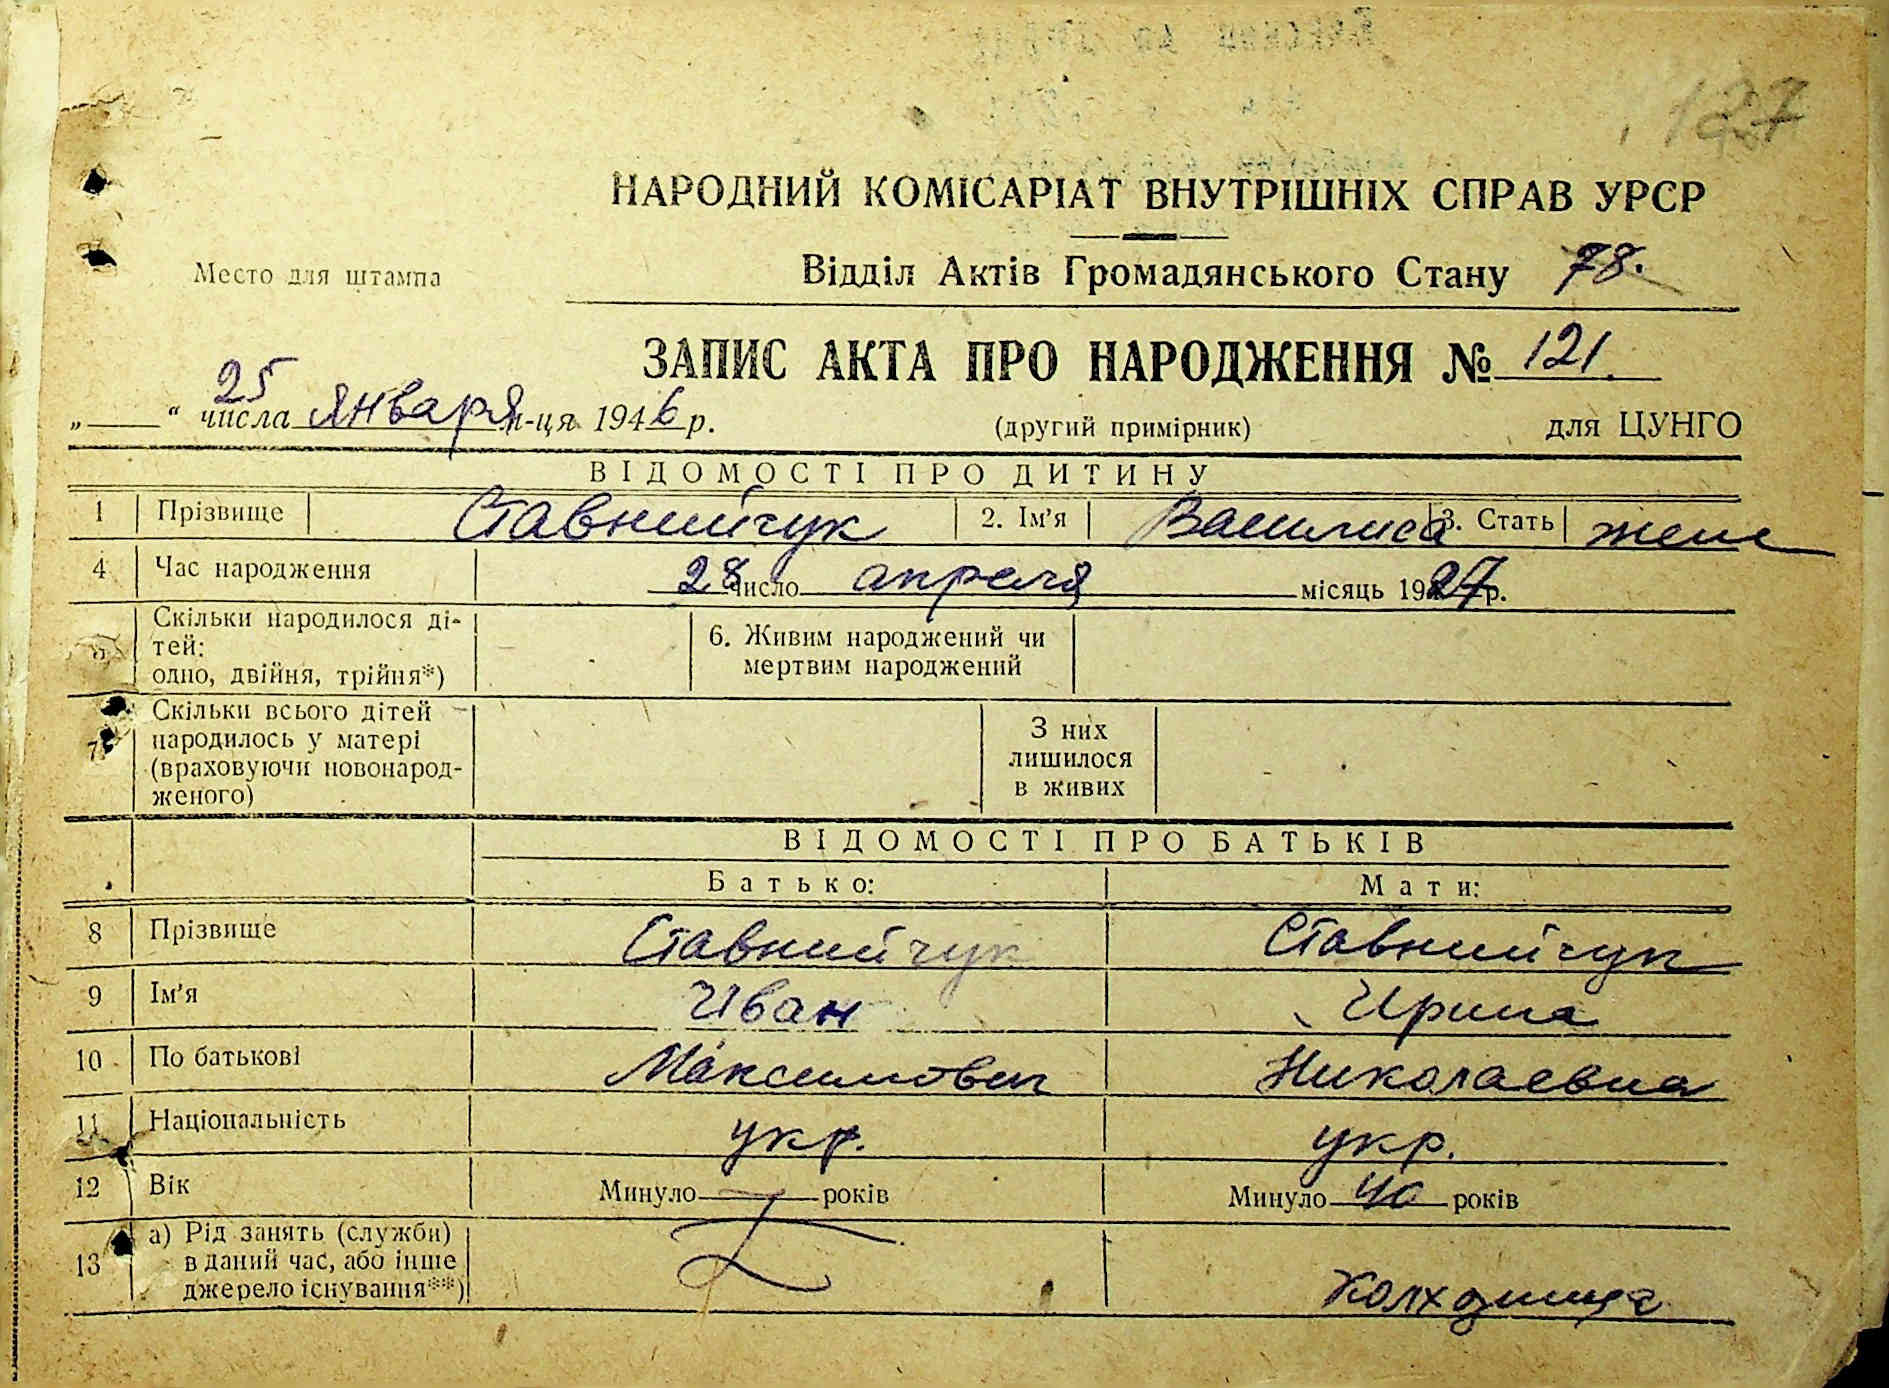 127
НАРОДНИЙ КОМІСАРІАТ ВНУТРІШНІХ СПРАВ УРСР
Место для штампа
Відділ Актів Громадянського Стану 78.
ЗАПИС АКТА ПРО НАРОДЖЕННЯ № 121.
„ “ 25 числа января м-ця 1946 р. (другий примірник) для ЦУНГО
ВІДОМОСТІ ПРО ДИТИНУ
1 Прізвище Ставнийчук 2. Ім'я Василиса 3. Стать жен
4 Час народження 28 число апреля місяць 1927 р.
5 Скільки народилося ді-
тей:
одно, двійня, трійня*)
6. Живим народжений чи
мертвим народжений
7 Скільки всього дітей
народилось у матері
(враховуючи новонарод-
женого)
З них
лишилося
в живих
ВІДОМОСТІ ПРО БАТЬКІВ
Батько: Мати:
8 Прізвище Ставнийчук Ставнийчук
9 Ім'я Иван Ирина
10 По батькові Максимович Николаевна
11 Національність укр. укр.
12 Вік Минуло років Минуло 40 років
13 а) Рід занять (служби)
в даний час, або інше
джерело існування**)
Колхозница